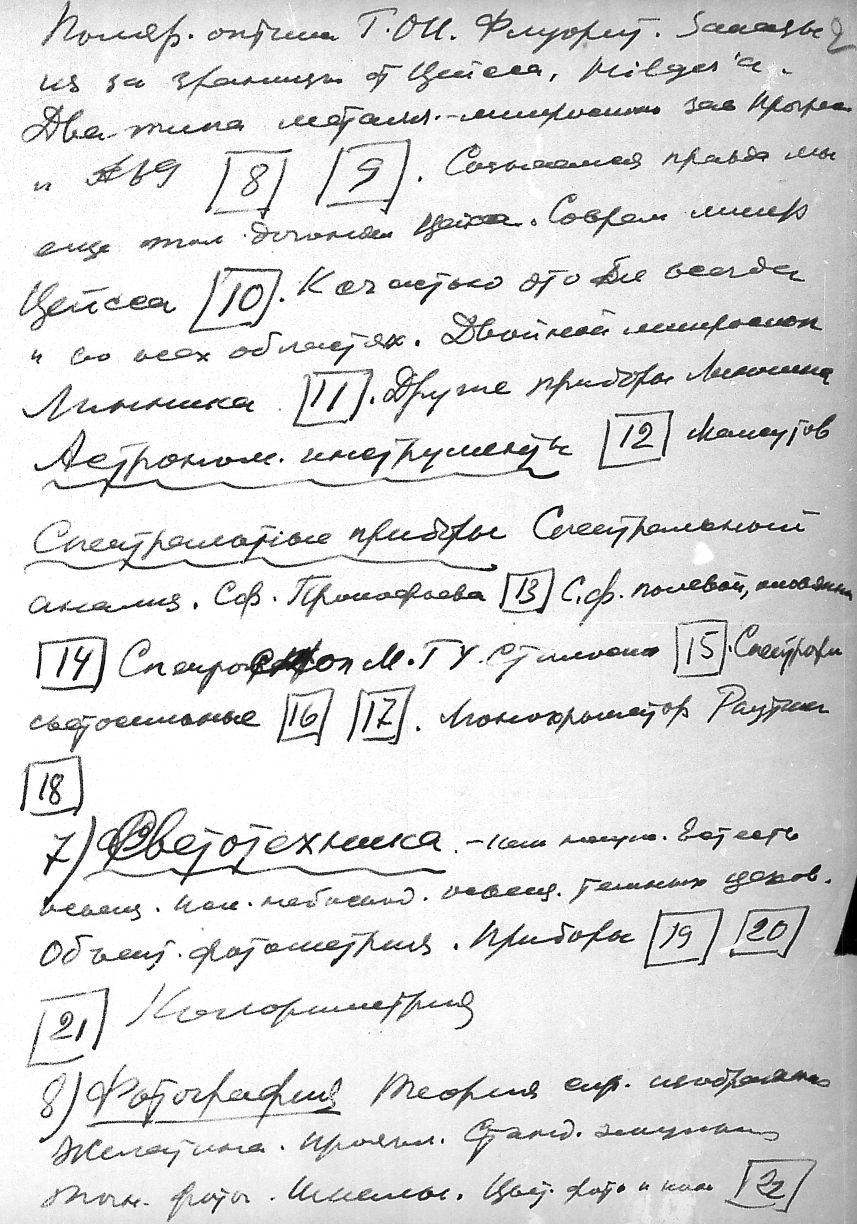 Поляр. оптика Г.О.И. Флуорит. Заказы 2
из за границы от Цейсса, Hilger'а.
Два типа металл.-микроскоп зав Прогресс
и №69 [8] [9]. Сознаемся правда мы
еще мол. догоняем Цейса. Соврем микр
Цейсса [10]. К счастью это не всегда
и во всех областях. Двойной микроскоп
Линника [11]. Другие приборы Линника
Астроном. инструменты [12] Максутов
Спектральные приборы Спектральный
анализ. Сф. Прокофьева [13] С.ф. полевой,
[14] Спектроскоп М.Г.У. [15]. Спектрогр
светосильные [16] [17]. Монохроматор Раутиан
[18]
7) Светотехника. - как наука. Ест есть
освещ. освещ. темных цехов.
Объект. фотометрия. Приборы [19] [20]
[21] Колориметрия
8) Фотография Теория скр. изображения
Желатина. Проявл. Станд. эмульсии
фото. Шкалы. Цвет. фото и кино [22]